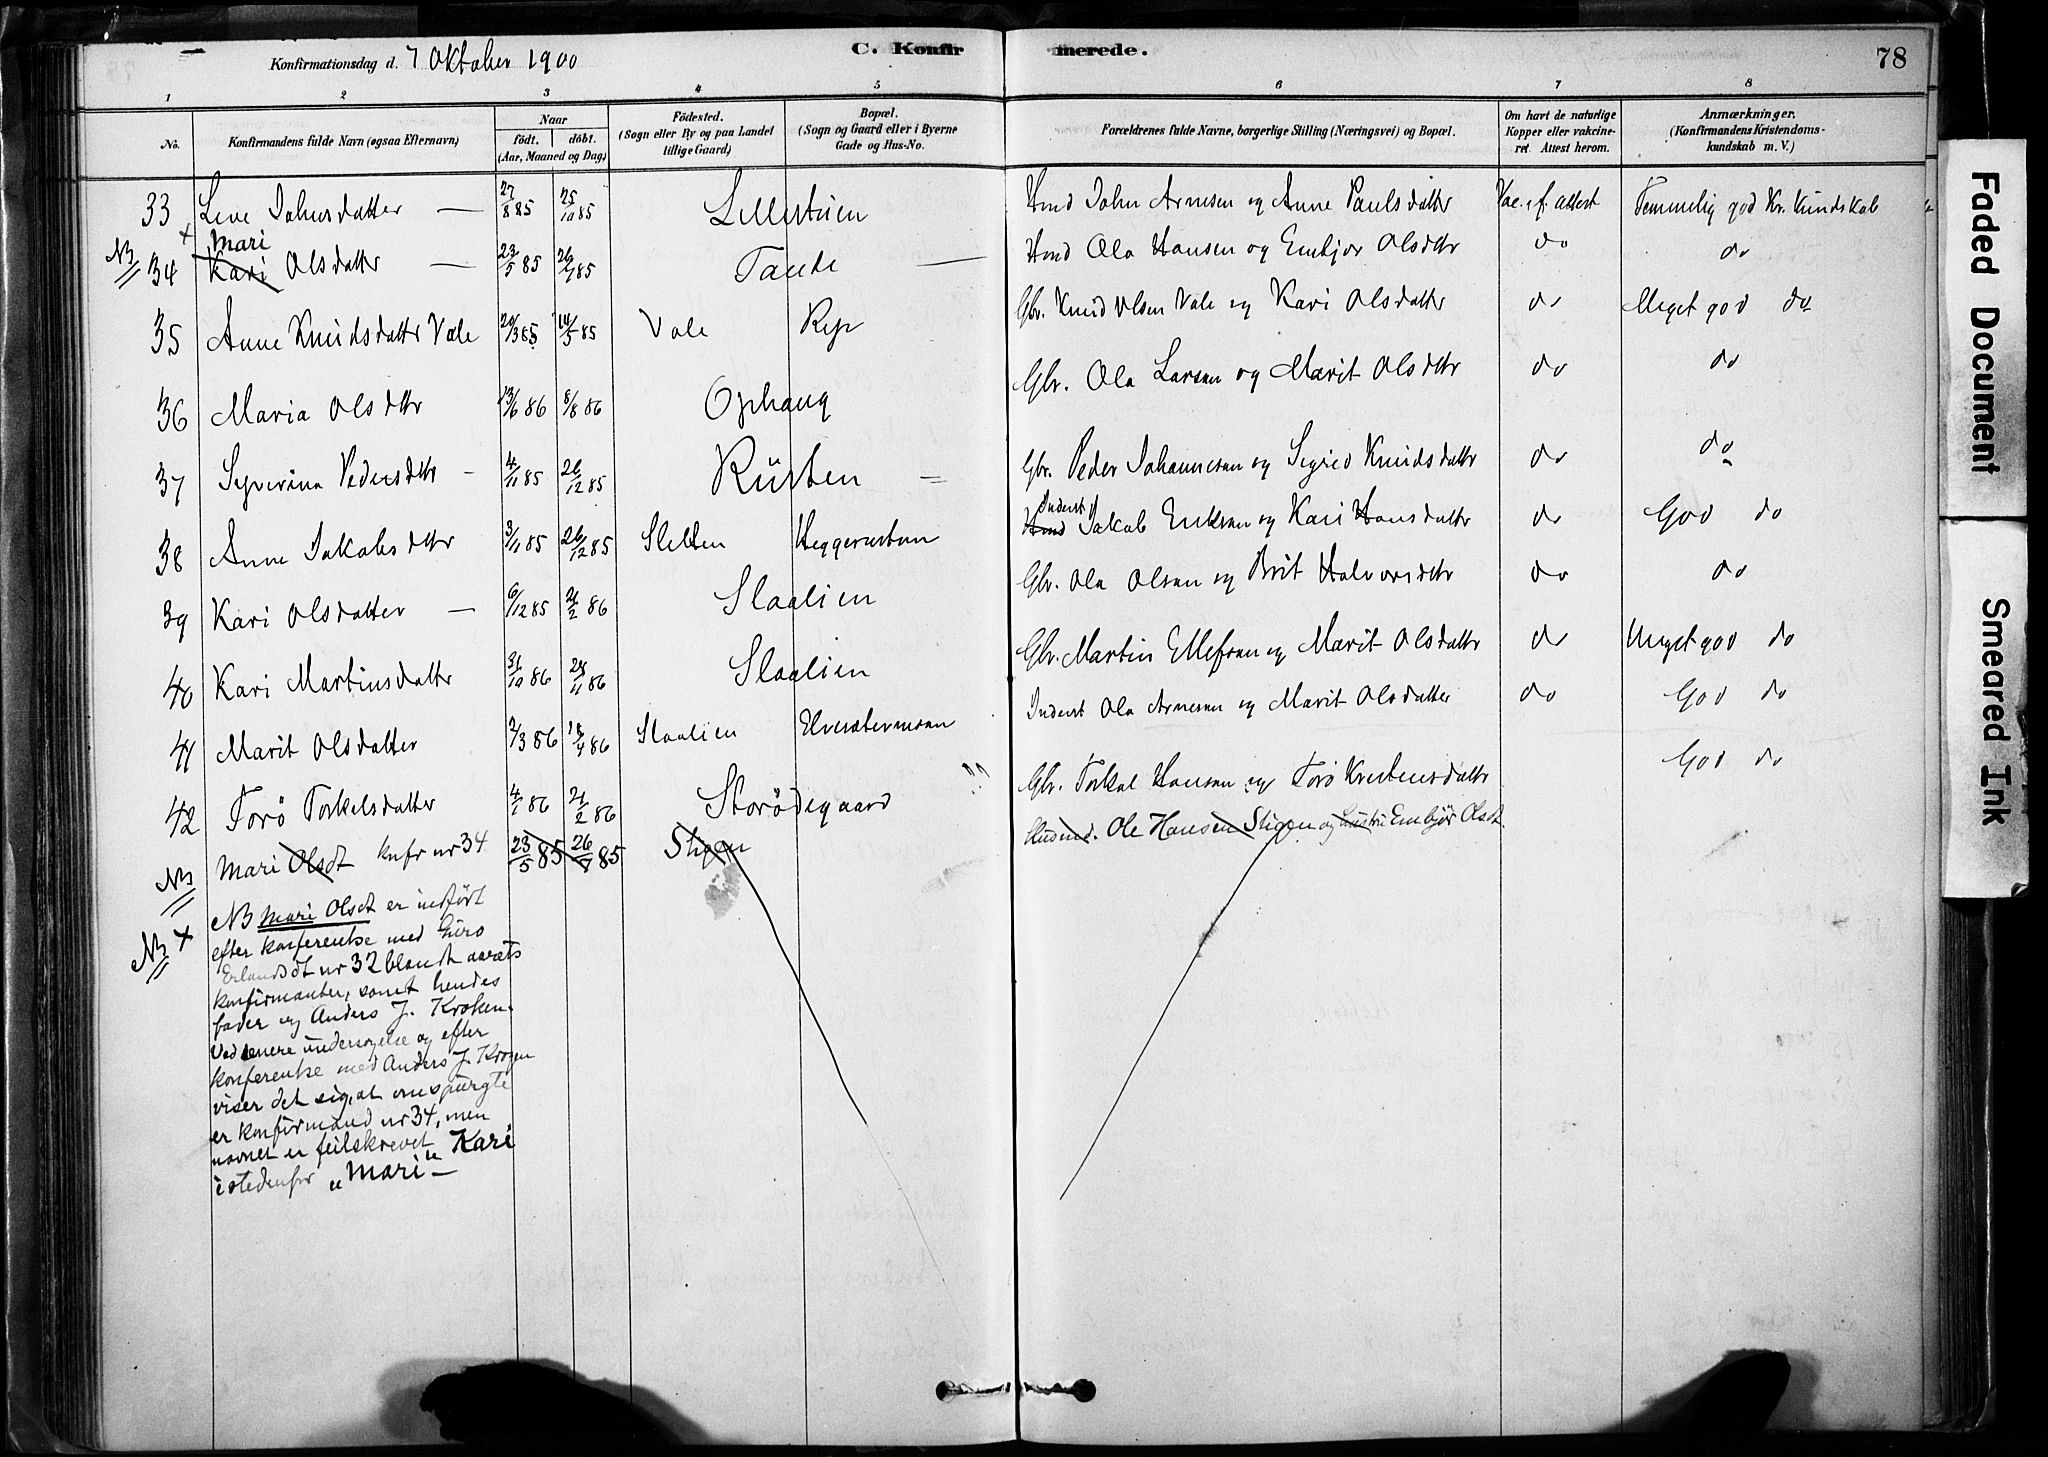 Konfirmationsdag d. 7 Oktober 1900 C. Konfirmerede. 78
1 2 3 4 5 6 7 8
No. Konfirmandens fulde Navn (ogsaa Efternavn) Naar født. døbt. (Aar, Maaned og Dag) Fødested. (Sogn eller By og paa Landet tillige Gaard) Bopæl. (Sogn og Gaard eller i Byerne Gade og Hus-No. Forældrenes fulde Navne, borgerlige Stilling (Næringsvei) og Bopæl. Om havt de naturlige Kopper eller vakcineret. Attest herom. Anmærkninger. (Konfirmandens Kristendomskundskab m. V.)
33 Johnsdatter — 27/8 85 25/10 85 Lillestuen Hmd John Arnesen og Anne Paulsdatter Vac. f. attest Temmelig god Kr. Kundskab
NB 34 + Mari Kari Olsdattr — 23/5 85 26/7 85 Hmd Ola Hansen og Embjør Olsdtr do do
35 Anne Knudsdattr Vale 20/3 85 14/5 85 Vale Gbr. Knud Olsen Vale og Kari Olsdattr do Meget god do
36 Maria Olsdtr 13/6 86 8/8 86 Ophaug Gbr. Ola Larsen og Marit Olsdtr do do
37 Syverina Pedersdtr - 4/11 85 26/12 85 Rusten = Gbr. Peder Johannesen og Sigrid Knudsdattr do do
38 Anne Jakobsdtr 3/11 85 26/12 85 Sletten Heggerusten Inderst Hmd Jakob Eriksen og Kari Hansdattr do God do
39 Kari Olsdatter — 6/12 85 21/2 86 Slaalien Gbr. Ola Olsen og Brit Halvorsdtr do do
40 Kari Martinsdattr 31/10 86 28/11 86 Slaalien Gbr. Martin Ellefsen og Marit Olsdattr do Meget god do
41 Marit Olsdatter 2/3 86 18/4 86 Slaalien Inderst Ola Arnesen og Marit Olsdatter do God do
42 Torö Torkelsdatter 4/1 86 21/2 86 Storødegaard Gbr. Torkel Hansen og Torö Kristensdattr God do
NB Mari Olsdt knfr nr 34 23/5 85 26/7 85 Stigen Husmd. Ole Hansen Stigen og hustru Embjør Olsdt.
NB + NB Mari Olsdt er indført
efter konferentse med Guro
Erlandsdt nr 32 blandt aarets
konfirmanter, samt hendes
fader og Anders J. Kroken.
Ved senere undersøgelse og efter
konferentse med Anders J. Krogen
viser det sig, at omspurgte
er konfirmand nr 34, men
navnet er feilskrevet Kari
istedenfor „Mari" —
Faded Document
Smeared Ink